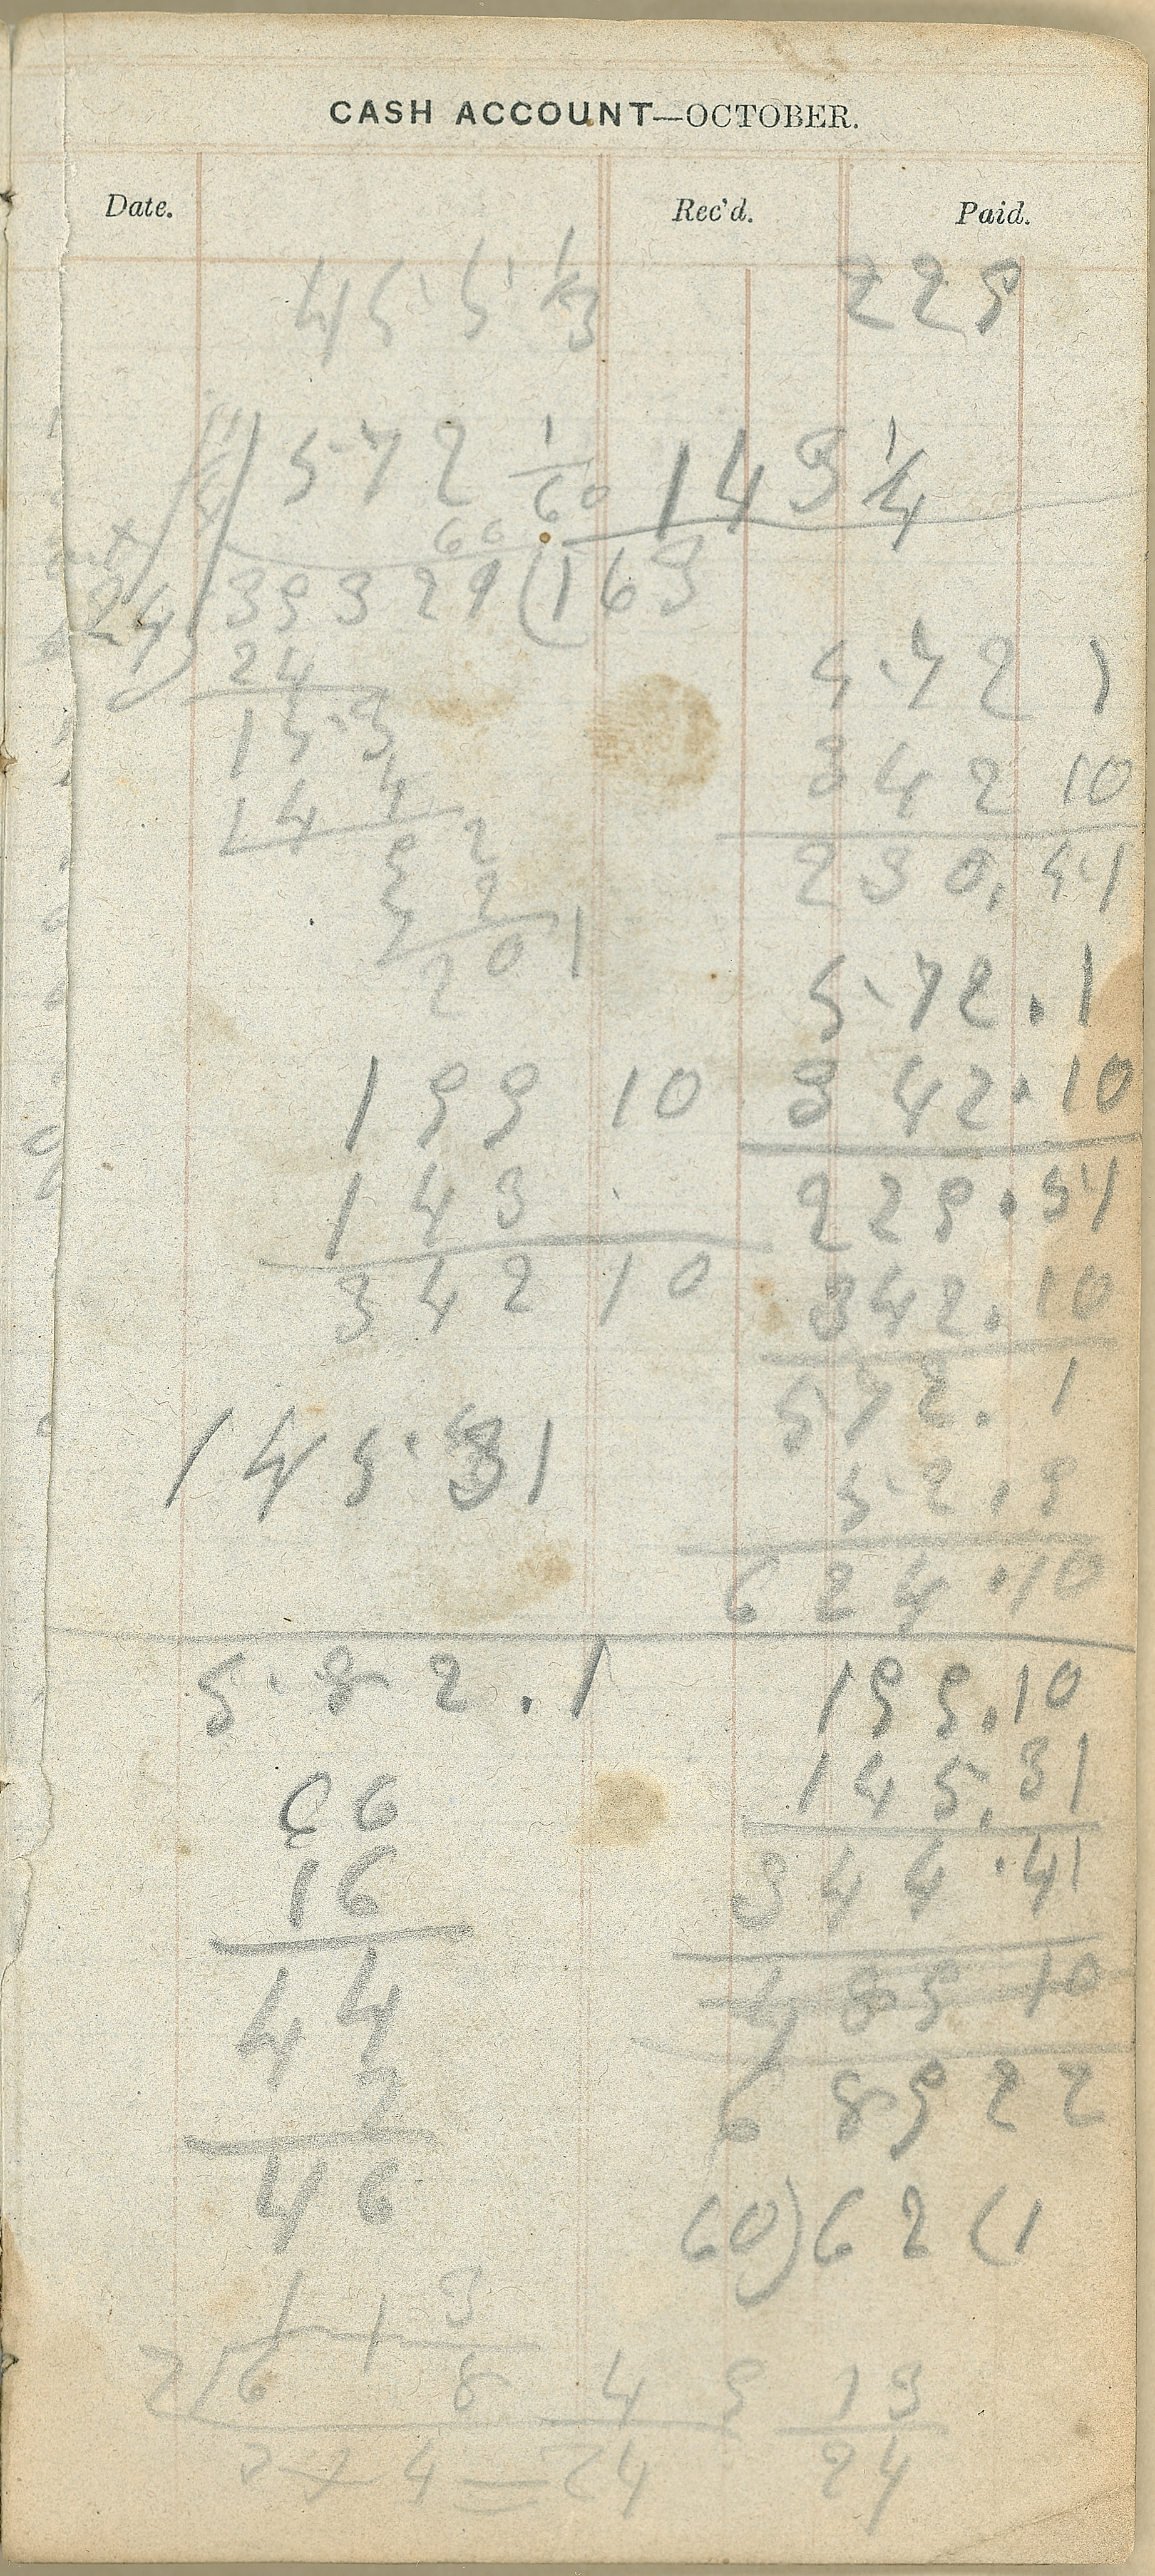 CASH ACCOUNT—OCTOBER.
Date. Rec'd. Paid.
45 5 1/3 229
572 1/60 143 1/4
66
24) 39329 (163
24
153
144
92
72
20 1
572 1
342 10
230. 51
572. 1
199 10 342. 10
143 229. 51
342 10 342. 10
572. 1
145 31 52. 9
624. 10
582. 1 199. 10
145. 31
06
16 344. 41
44 489 10
2 68922
46 60) 62 (1
1 1 3
2 6 8 4 9 13
4 = 24 24